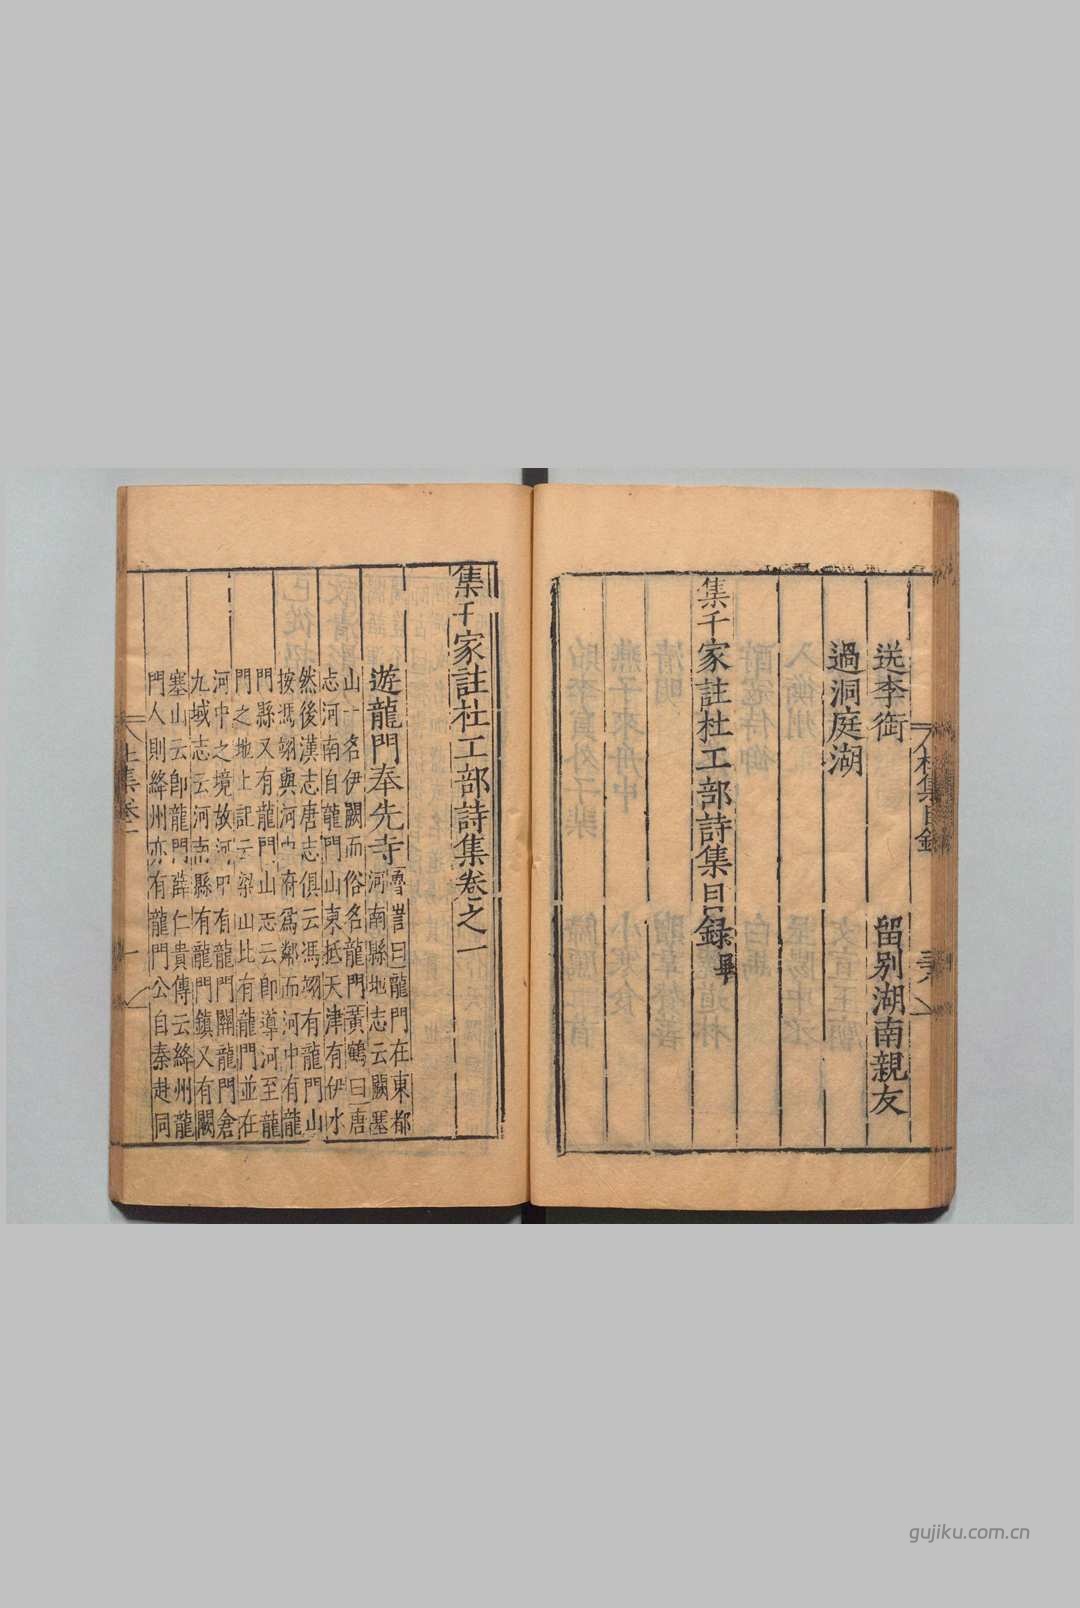 送李銜
留别湖南親友
過洞庭湖
集千家註杜工部詩集目録畢
集千家註杜工部詩集卷之一
遊龍門奉先寺
魯訔曰龍門在東都
河南縣地志云闕塞
山一名伊闕而俗名龍門黃鶴曰唐
志河南自龍門山東抵天津有伊水
然後漢志唐志俱云馮翊有龍門山
按馮翊與河中府爲鄰而河中有龍
門縣又有龍門山志云即導河至龍
門之地上記云梁山北有龍門並在
河中之境故河中有龍門關龍門倉
九域志云河南縣有龍門鎮又有闕
塞山云即龍門薛仁貴傳云絳州龍
門人則絳州亦有龍門公自秦赴同
杜集目録
杜集卷一
一
gujiku.com.cn